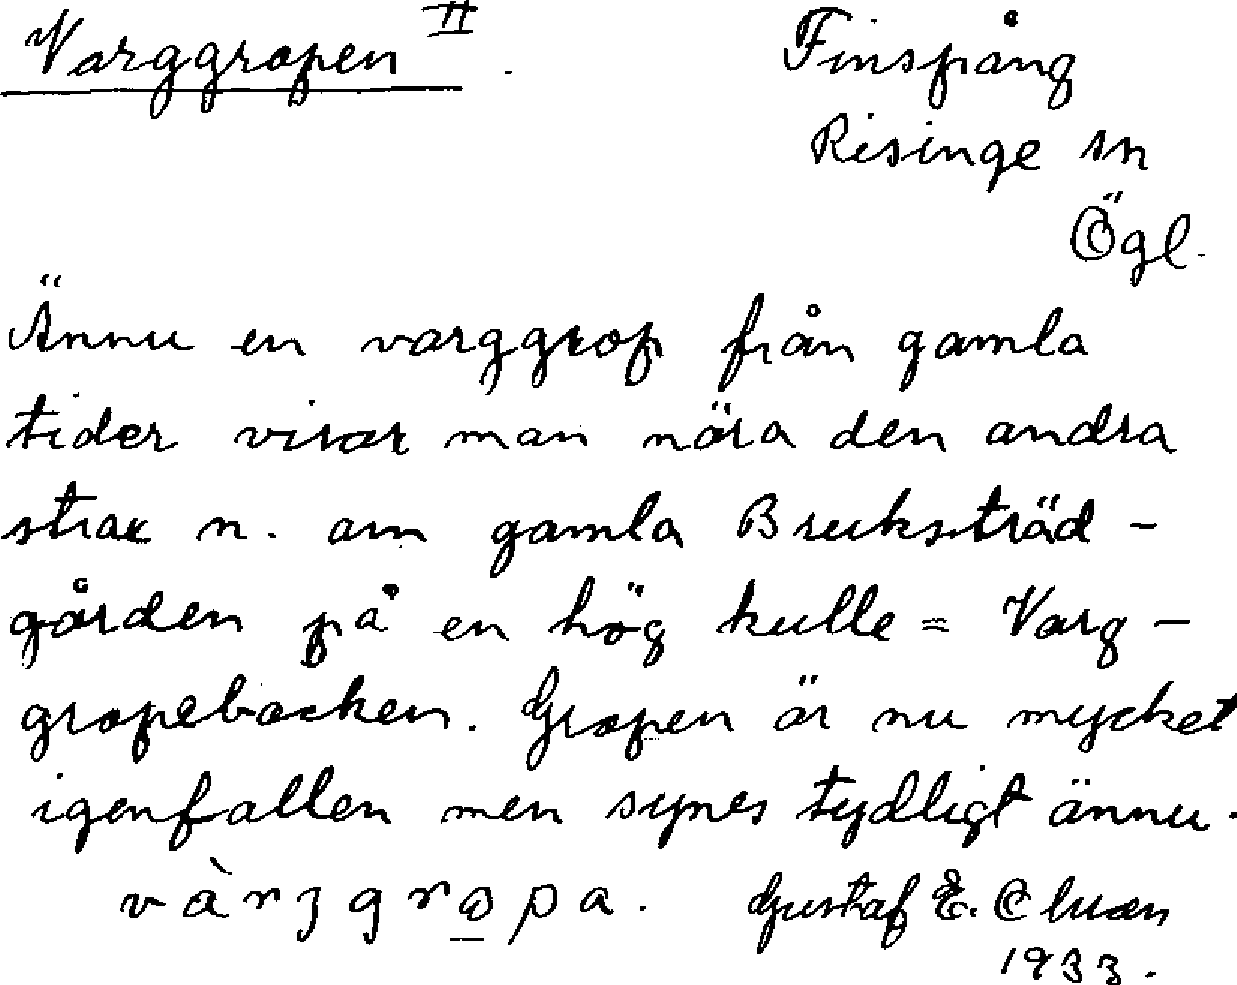 Varggropen II.
Finspång
Risinge sn
Ögl.
Ännu en varggrop från gamla
tider visar man nära den andra
strax n. om gamla Bruksträd-
gården på en hög kulle = Varg-
gropebacken. Gropen är nu mycket
igenfallen men synes tydligt ännu.
vàrʒgro̲pa. Gustaf E.
1933.